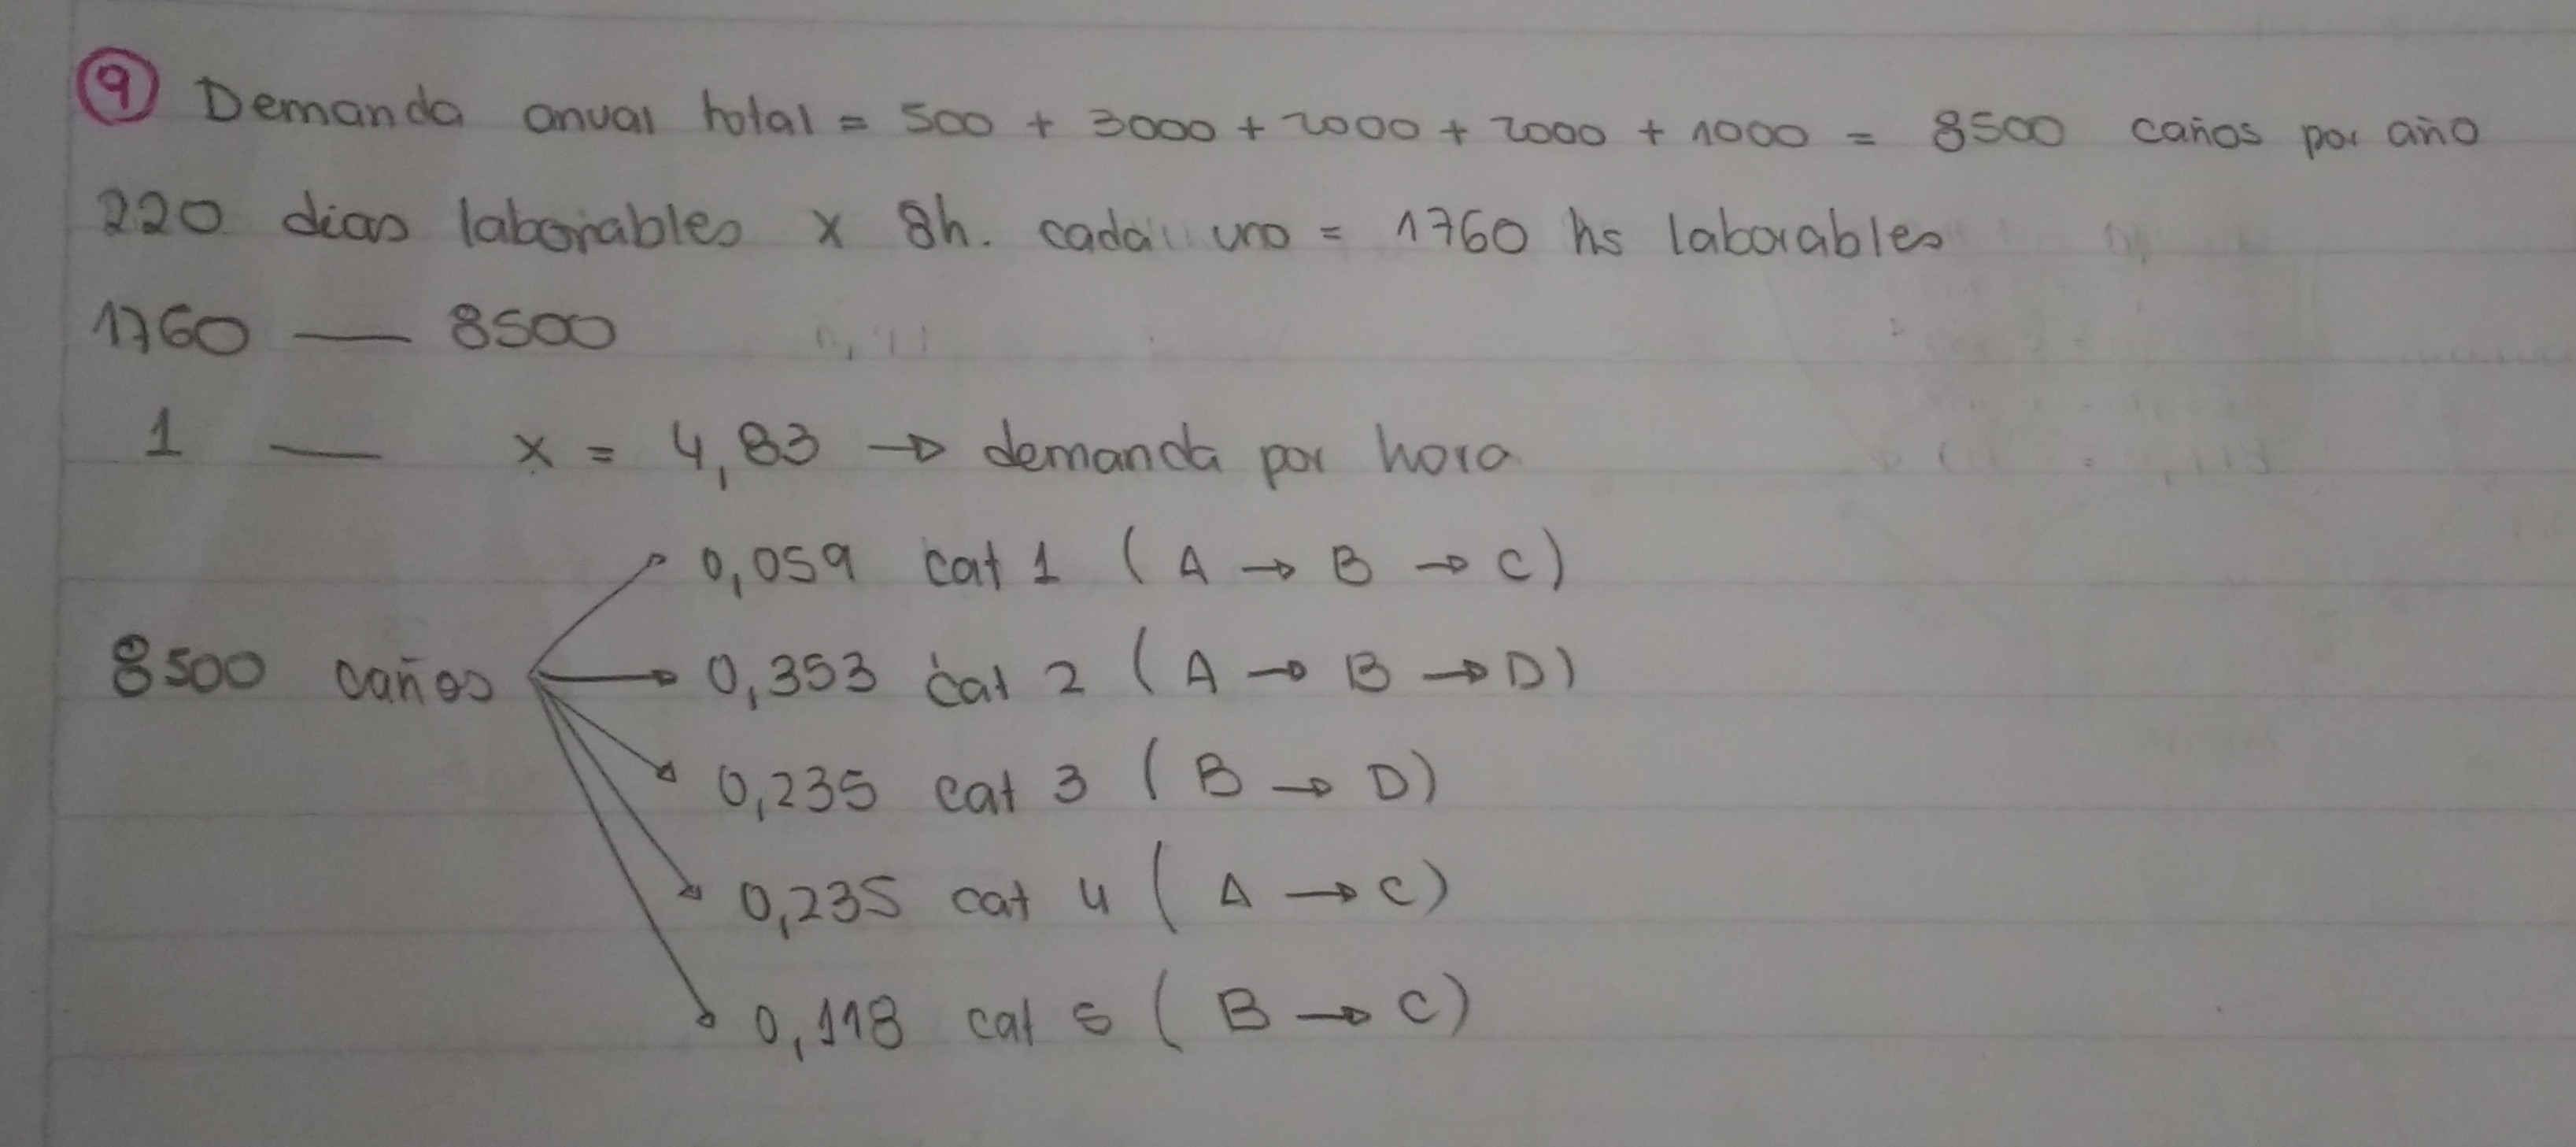 9 Demanda anual total = 500 + 3000 + 2000 + 2000 + 1000 = 8500 caños por año
220 dias laborables x 8h. cada uno = 1760 hs laborables
1760 — 8500
1 — x = 4,83 → demanda por hora
0,059 cat 1 (A → B → C)
8500 caños → 0,353 cat 2 (A → B → D)
0,235 cat 3 (B → D)
0,235 cat 4 (A → C)
0,118 cat 5 (B → C)